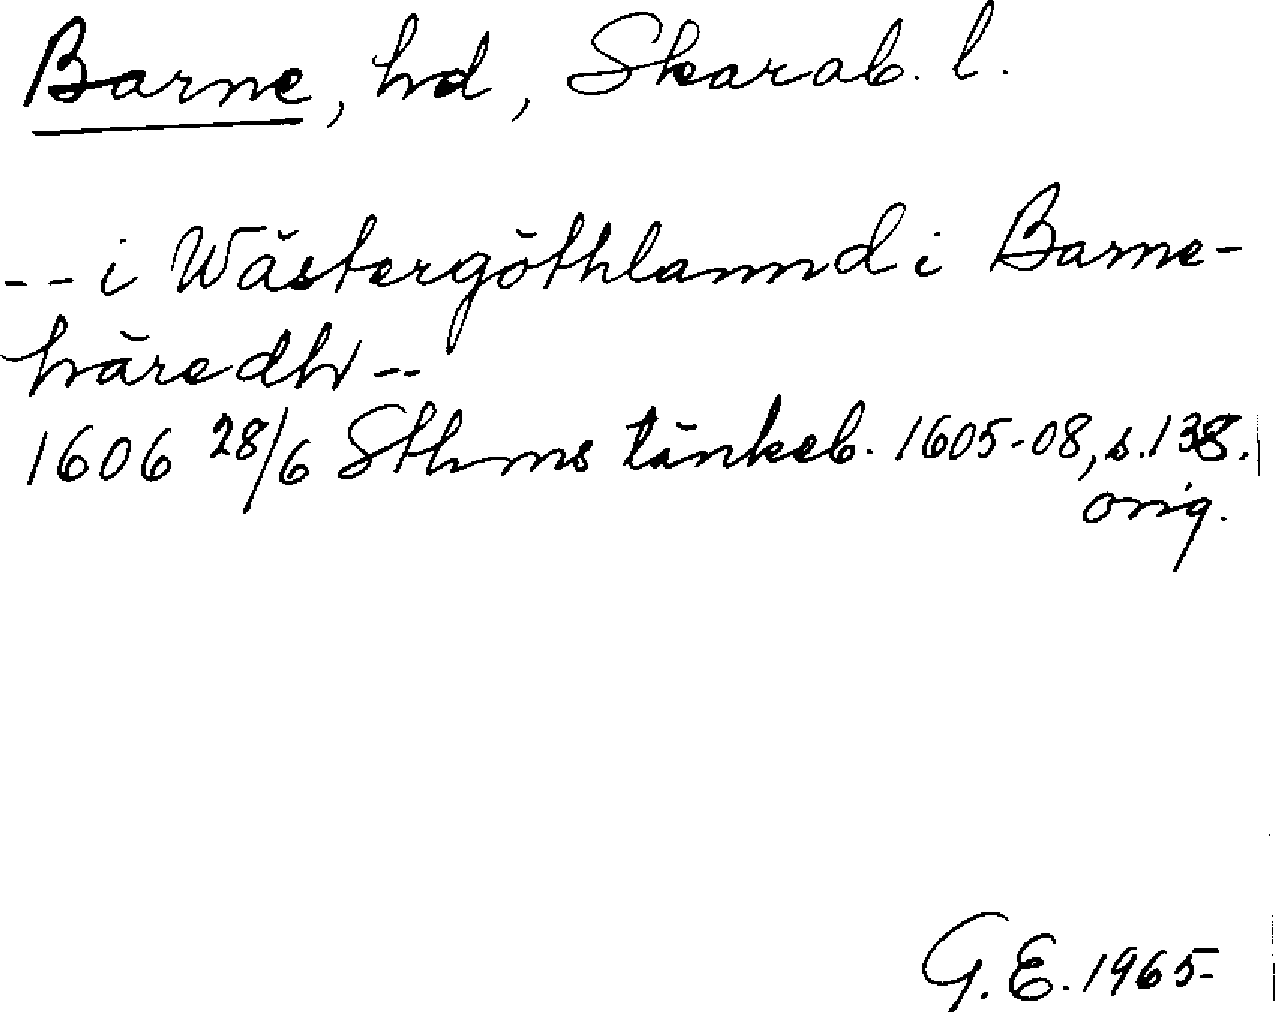 Barne, hd, Skarab. l.
-- i Wästergöthlannd i Barne-
häredh --
1606 28/6 Sthms tänkeb. 1605-08, s. 138.
orig.
G. E. 1965